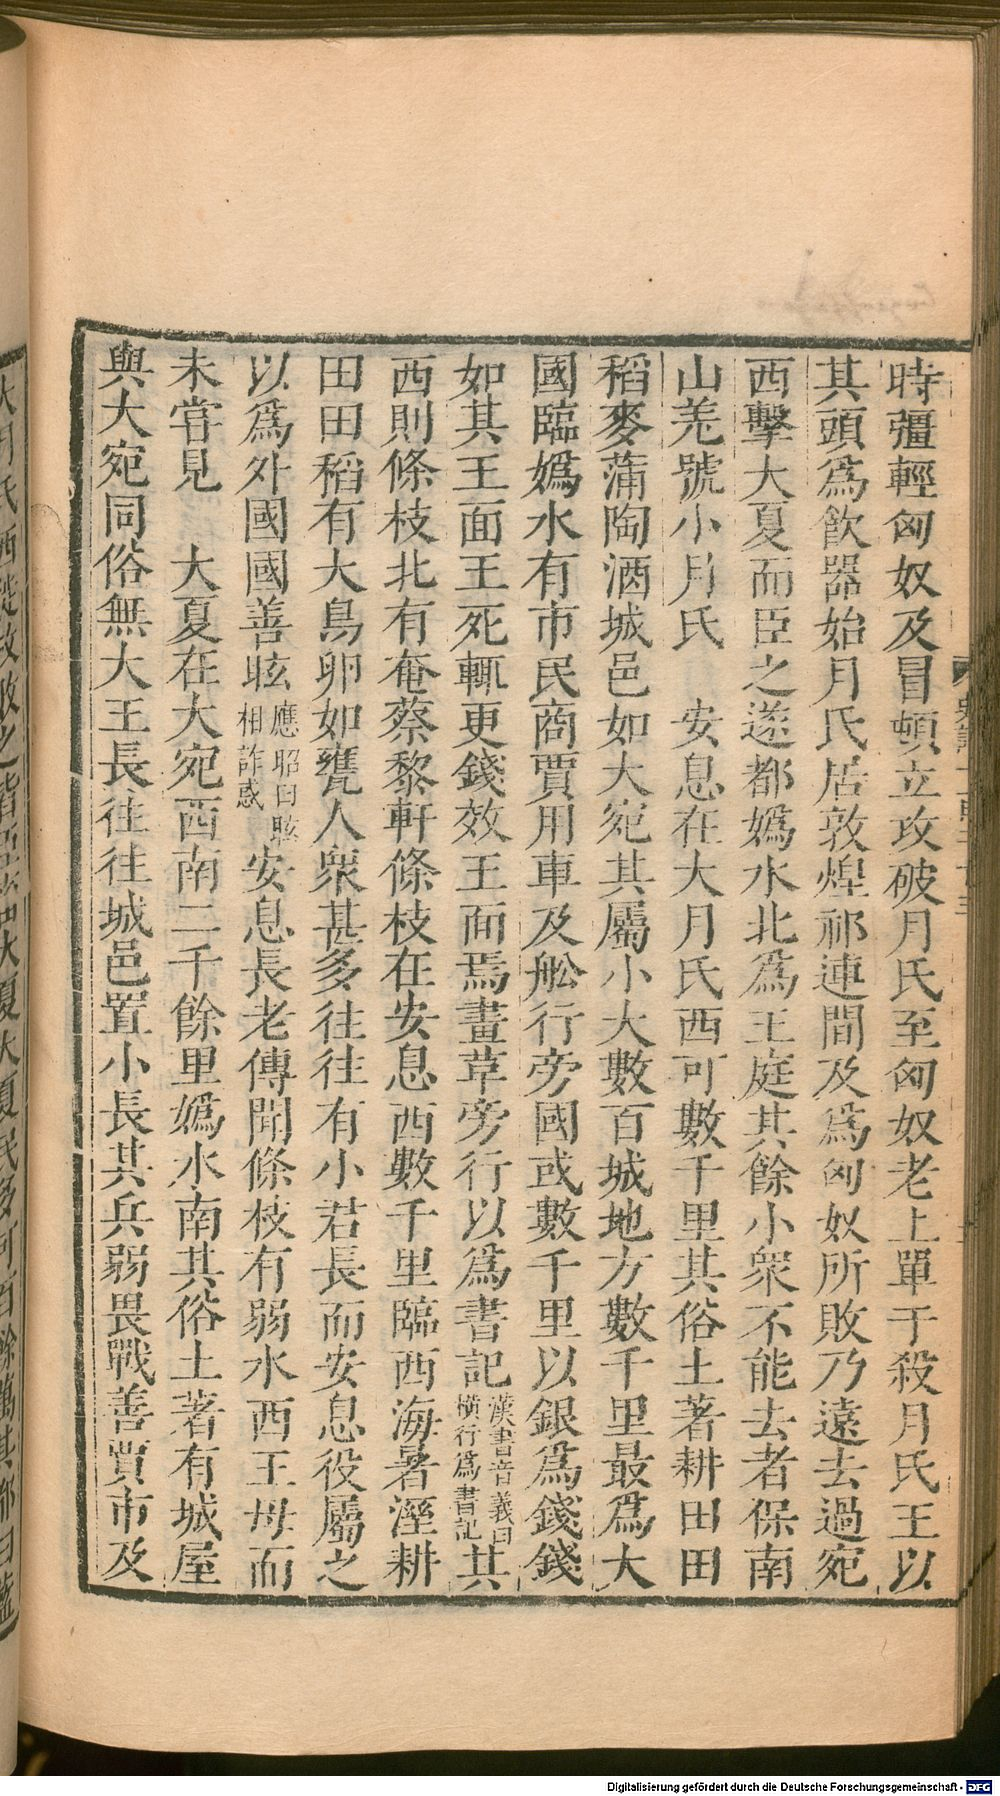 時彊輕匈奴及冒頓立攻破月氏至匈奴老上單于殺月氏王以
其頭爲飲器始月氏居敦煌祁連間及爲匈奴所敗乃遠去過宛
西擊大夏而臣之遂都媯水北爲王庭其餘小衆不能去者保南
山羌號小月氏　安息在大月氏西可數千里其俗土著耕田田
稻麥蒲陶酒城邑如大宛其屬小大數百城地方數千里最爲大
國臨媯水有市民商賈用車及舩行旁國或數千里以銀爲錢錢
如其王面王死輒更錢效王面焉畫革旁行以爲書記漢書音義曰橫行爲書記其
西則條枝北有奄蔡黎軒條枝在安息西數千里臨西海暑溼耕
田田稻有大鳥卵如甕人衆甚多往往有小君長而安息役屬之
以爲外國國善眩應昭曰眩相詐惑安息長老傳聞條枝有弱水西王母而
未嘗見　大夏在大宛西南二千餘里媯水南其俗土著有城屋
與大宛同俗無大王長往往城邑置小長其兵弱畏戰善賈市及
大月氏西徙攻敗之皆臣畜大夏大夏民多可百餘萬其都曰藍
Digitalisierung gefördert durch die Deutsche Forschungsgemeinschaft - DFG